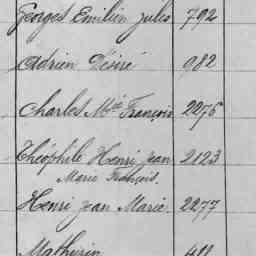 Georges Emilien Jules 792
Adrien Désiré 982
Charles Mie François 2276
Théophile Henri Jean 2123
Marie François.
Henri Jean Marie. 2277
Mathurin 411